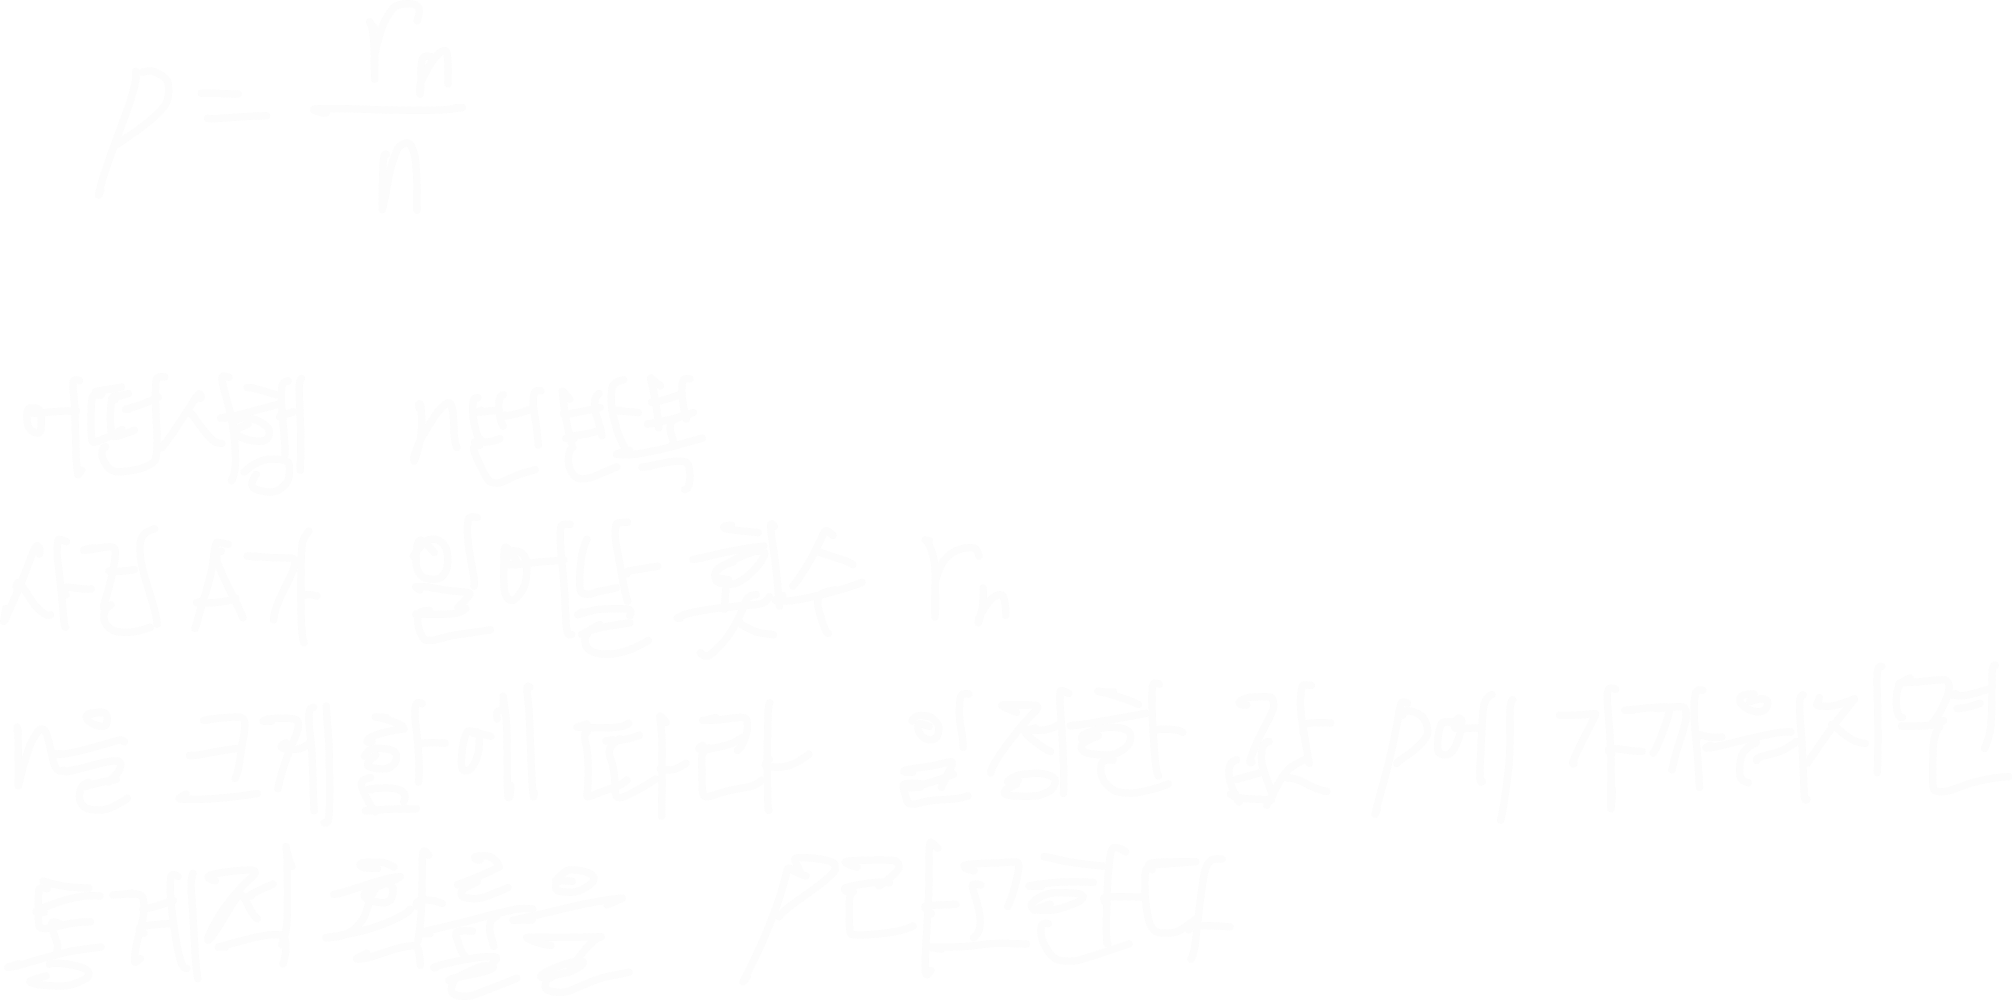 p = rₙ/n
어떤시행 n번반복
사건 A가 일어날 횟수 rₙ
n을 크게함에 따라 일정한 값 p에 가까워지면
통계적 확률을 p라고한다